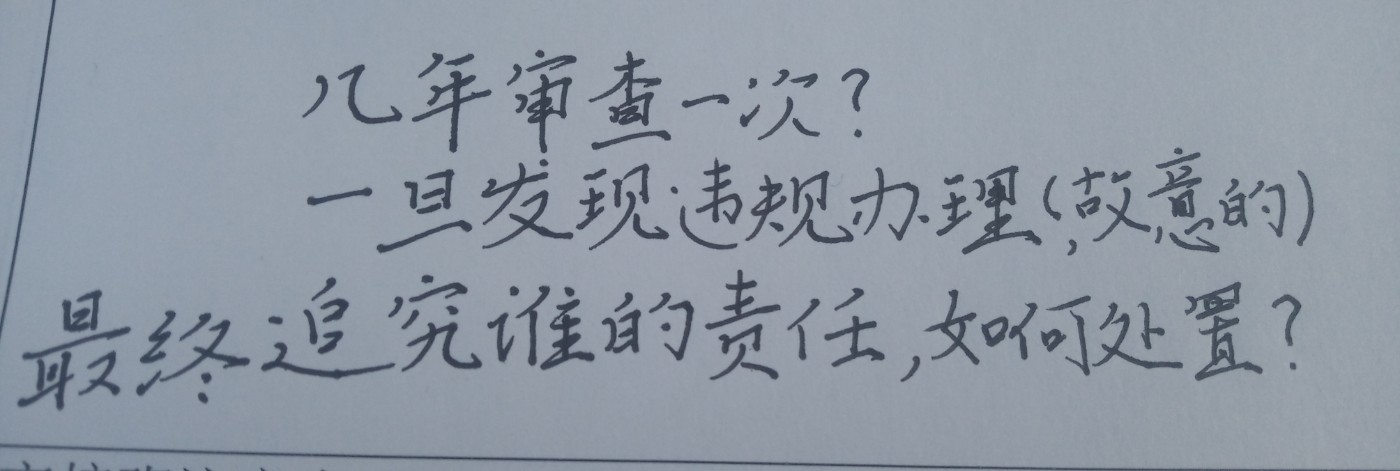 几年审查一次?
一旦发现违规办理(故意的)
最终追究谁的责任,如何处置?